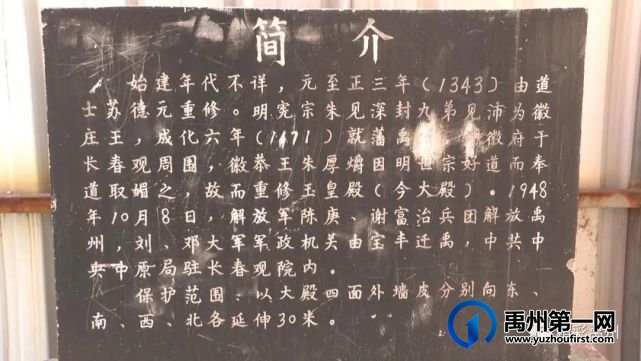 简 介
始建年代不详，元至正三年(1343)由道
士苏德元重修。明宪宗朱见深封九弟见沛为徽
庄王，成化六年(1471)就藩禹 府于
长春观周围，徽恭王朱厚爝因明世宗好道而奉
道取媚之，故而重修玉皇殿(今大殿)。1948
年10月8日，解放军陈赓、谢富治兵团解放禹
州，刘、邓大军军政机关由宝丰迁禹，中共中
央中原局驻长春观院内。
保护范围：以大殿四面外墙皮分别向东、
南、西、北各延伸30米。
禹州第一网
www.yuzhoufirst.com